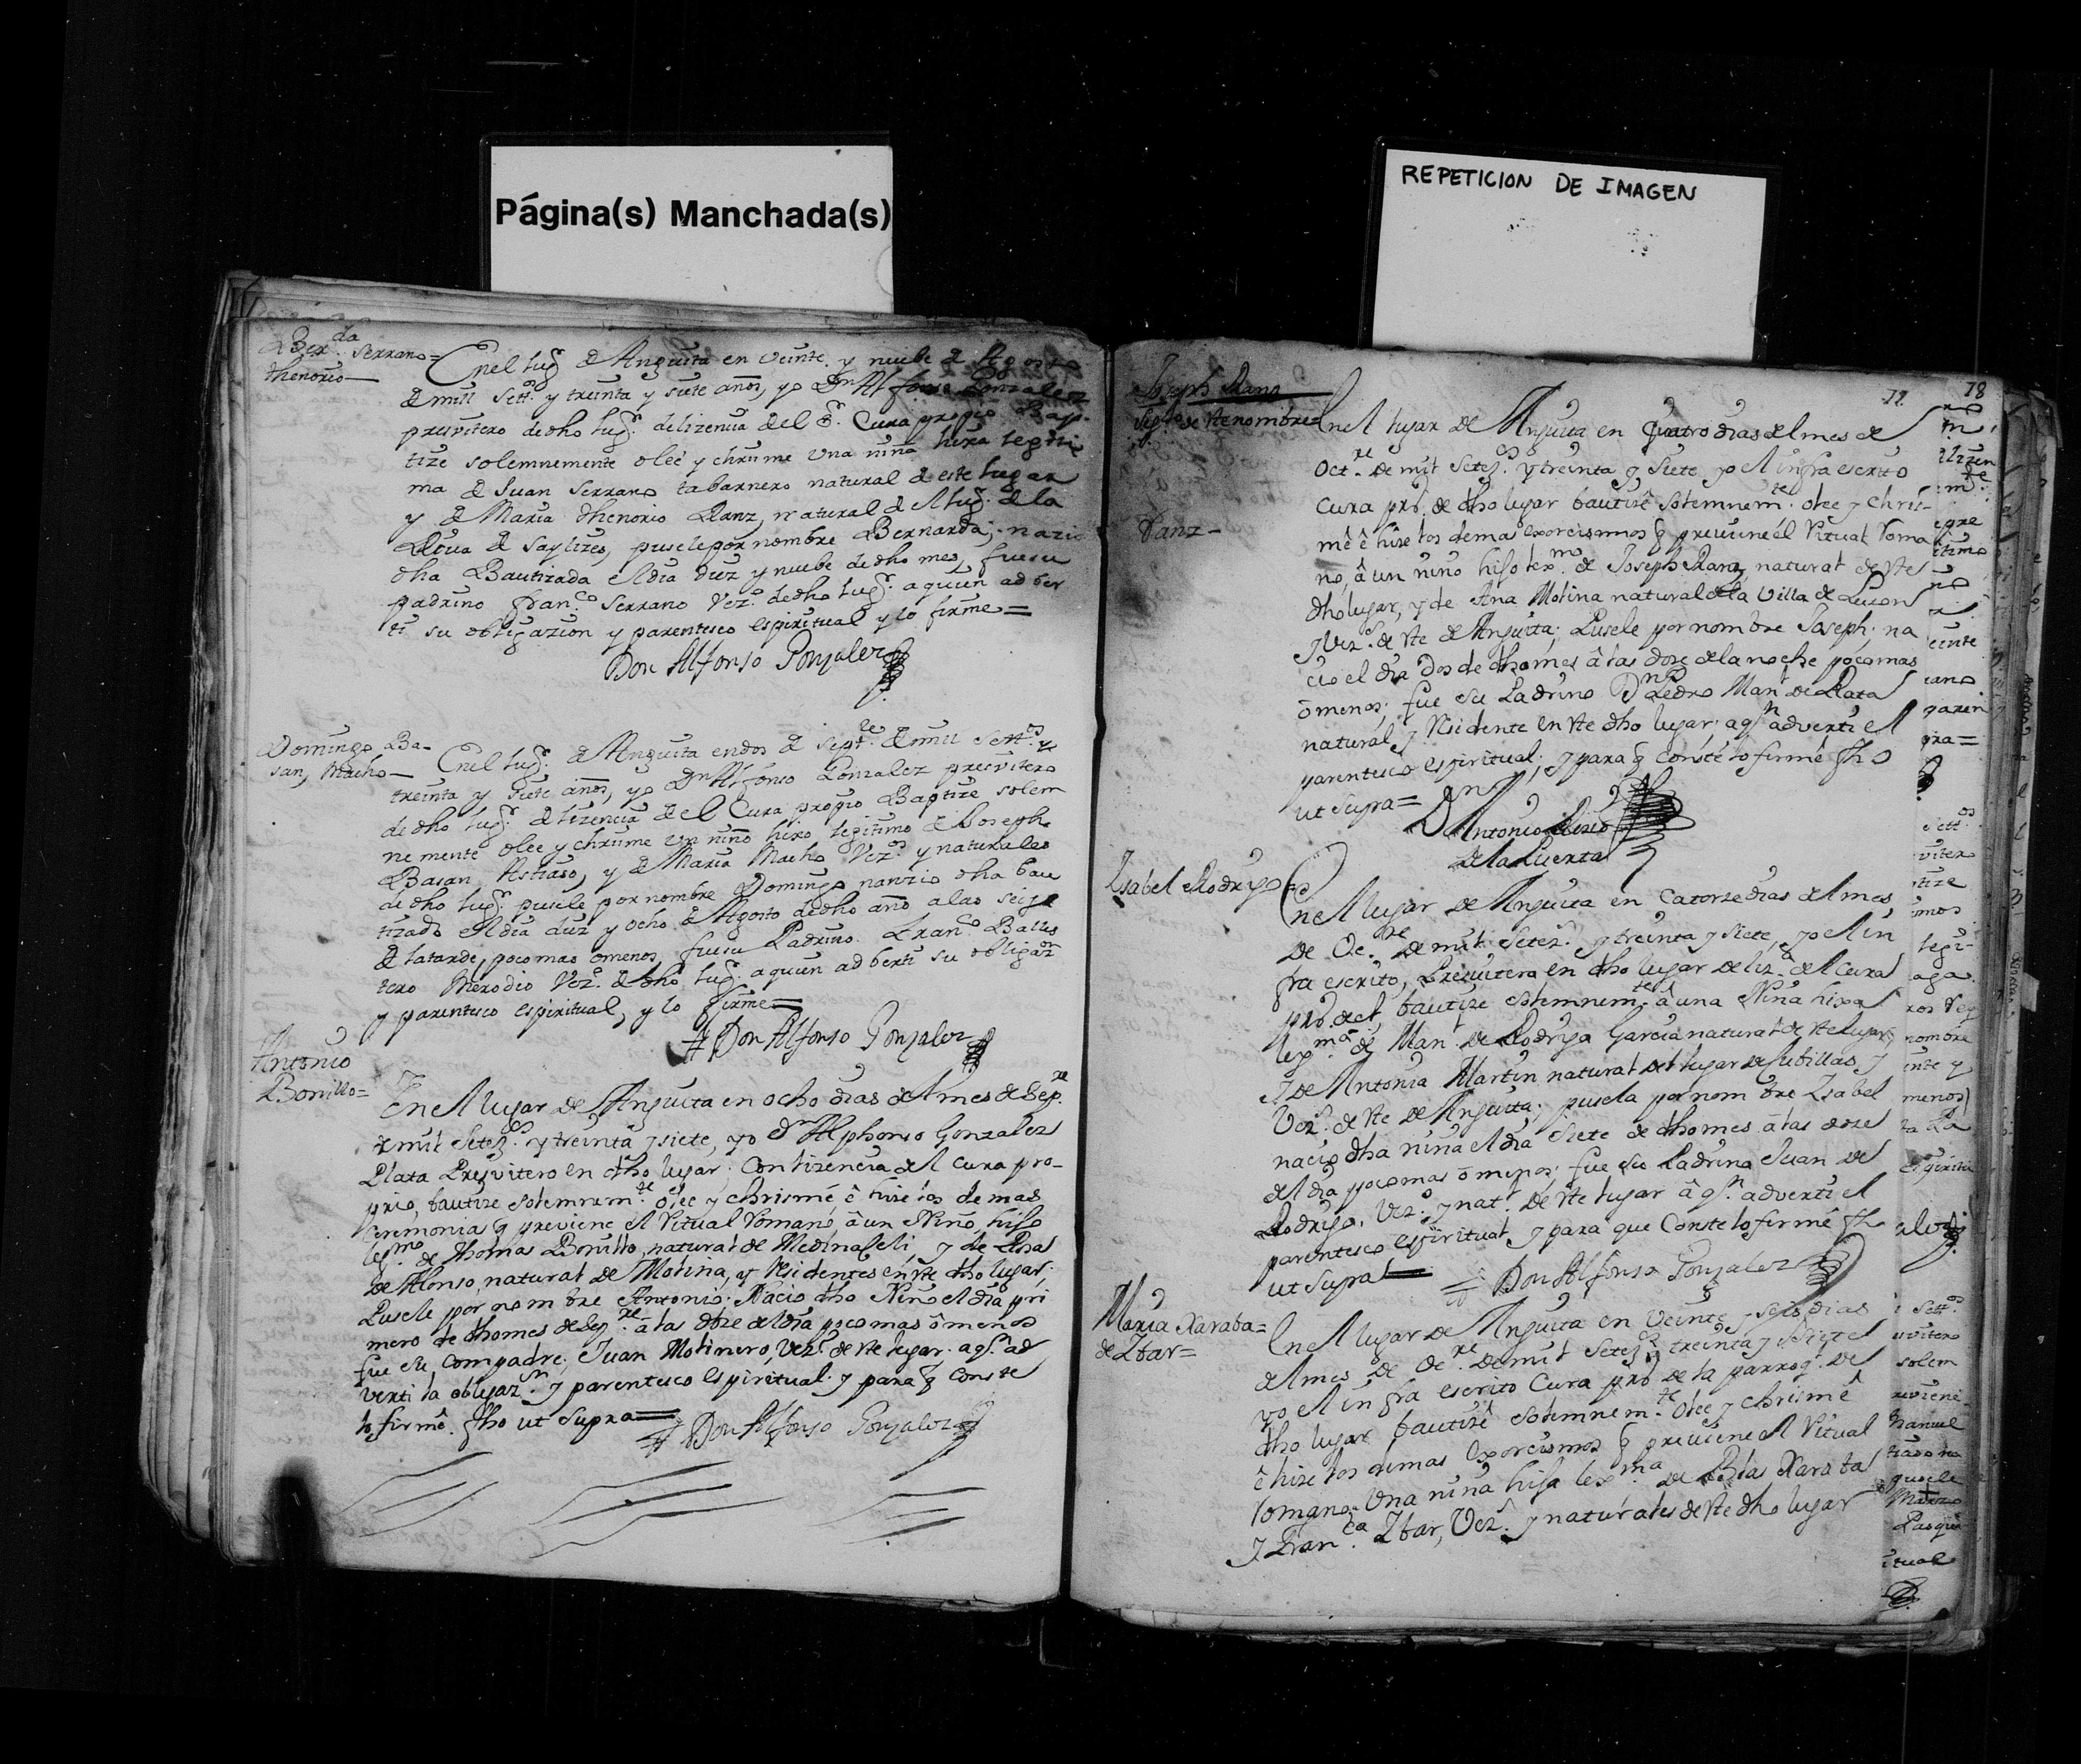 Página(s) Manchada(s)
REPETICION DE IMAGEN
Ber.da Serrano=
thenorio—
En el lug.r de Anguita en veinte y nuebe de Agosto
de mill sett.s y treinta y siete años, yo Dn Alfonso Gonzalez
presvitero de dho lug.r de lizencia del S.r Cura propio Bap-
tize solemnemente oleé y chrisme una niña hixa legiti
ma de Juan Serrano tabarnero natural de este lugar
y de Maria thenorio Ranz, natural del lug.r de la
Riva de Saylizes, pusele por nombre Bernarda; nazio
dha Bautizada el dia diez y nuebe de dho mes, fue su
padrino fran.co Serrano Vez.o de dho lug.r a quien adber
ti su obligazion y parentesco espiritual y lo firme=
Don Alfonso Gonzalez
Domingo Ba-
san, Macho—
En el lug.r de Anguita en dos de sept.re de mill sett.s y
treinta y siete años, yo Dn Alfonso Gonzalez presvitero
de dho lug.r de lizencia del Cura propio Baptize solem
nemente olee y chrisme un niño hixo legitimo de Joseph
Basan Astraso, y de Maria Macho Vez.os y naturales
de dho lug.r pusele por nombre Domingo nanzio dha bau
tizado el dia diez y ocho de Agosto de dho año a las seis
de la tarde, poco mas o menos, fue su Padrino Fran.co Balles
tero Merodio Vez.o de dho lug.r a quien adberti su obligaz.n
y parentesco espiritual, y lo firme=
Don Alfonso Gonzalez
Antonio
Bonillo=
En el lugar de Anguita en ocho dias del mes de Sep.re
de mil Setez.s y treinta y siete, yo Dn Alphonso Gonzalez
Plata Presvitero en dho lugar; Con lizencia del Cura pro-
prio, bautize solemnem.te olee y chrismé ê hize los demas
Ceremonias q previene el Ritual Romano, â un Niño, hijo
leg.mo de Thomas Bonillo, natural de Medinaseli, y de Rosa
de Alonso, natural de Molina, y Residentes en este dho lugar;
Pusele por nombre Antonio. Nacio dho Niño el dia pri
mero de dho mes de Sep.re â las doze del dia poco mas ô menos
fue su compadre, Juan Molinero, vez.o de este lugar. a q.n ad
verti la obligaz.n y parentesco espiritual. y para q conste
lo firmê. fho ut supra=
Don Alfonso Gonzalez
12 18
Joseph Ranz
Ranz-
En el lugar de Anguita en quatro dias del mes de
Oct.re de mil Setez.s y treinta y siete, yo el infra escrito
Cura pro. de dho lugar bautizê solemnem.te olee y chris-
mê ê hize los demas exorcismos q previene él Ritual Roma
no, â un niño hijo lex.mo de Joseph Ranz, natural de este
dho lugar, y de Ana Molina natural de la villa de Luzon
y Vez.s de este de Anguita; Pusele por nombre Joseph; na
cio el dia dos de dho mes â las doze de la noche poco mas
ô menos; fue su Padrino Dn Pedro Man.l de Plata
natural, y Residente en este dho lugar; a q.n adverti el
parentesco espiritual; y para q conste lo firmê fho
ut supra=
Dn Antonio
de la Puerta
Isabel Rodrigo=
En el lugar de Anguita en Catorze dias del mes
de Oc.re de mil Setez.s y treinta y siete, yo el in
fra escrito, Presvitero en dho lugar de liz.a del Cura
pro. de el, bautize solemnem.te â una Niña hixa
lex.ma de Man.l de Rodrigo Garcia natural de este lugar,
y de Antonia Martin natural del lugar de Cubillas, y
Vez.s de este de Anguita; pusela por nombre Isabel
nacio dha niña el dia siete de dho mes â las doze
del dia poco mas ô menos; fue su Padrino Juan de
Rodrigo, Vez.o y nat.l de este lugar â q.n adverti el
parentesco espiritual, y para que Conste lo firmê fho
ut supra=
Don Alfonso Gonzalez
Maria Xaraba=
de Ibar=
En el lugar de Anguita en veinte y seis dias
del mes de Oc.re de mil Setez.s y treinta y siete
yo el infra escrito Cura pro de la parroq.l de
dho lugar bautizê solemnem.te Olee y chrismê
ê hize los demas exorcismos q previene el Ritual
Romano, Una niña hija lex.ma de Blas Xaraba
y Fran.ca Ibar, Vez.s y naturales de este dho lugar